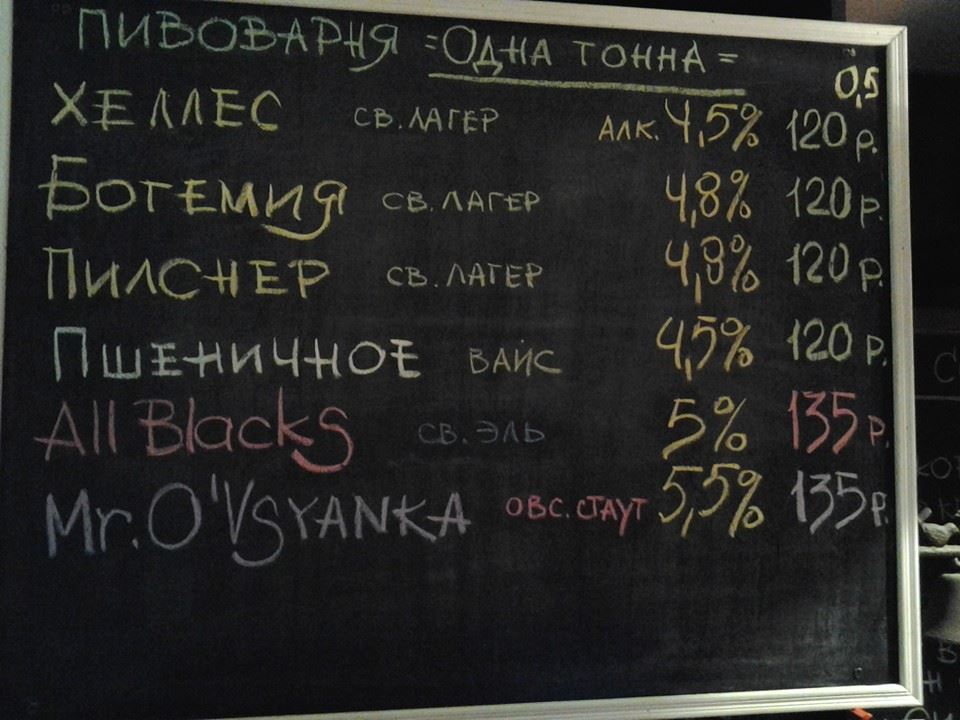 ПИВОВАРНЯ =ОДНА ТОННА=
0,5
ХЕЛЛЕС СВ. ЛАГЕР АЛК. 4,5% 120 р.
БОГЕМИЯ СВ. ЛАГЕР 4,8% 120 р.
ПИЛСНЕР СВ. ЛАГЕР 4,8% 120 р.
ПШЕНИЧНОЕ ВАЙС 4,5% 120 р.
All Blacks СВ. ЭЛЬ 5% 135 р.
Mr. O'VSYANKA ОВС. СТАУТ 5,5% 135 р.